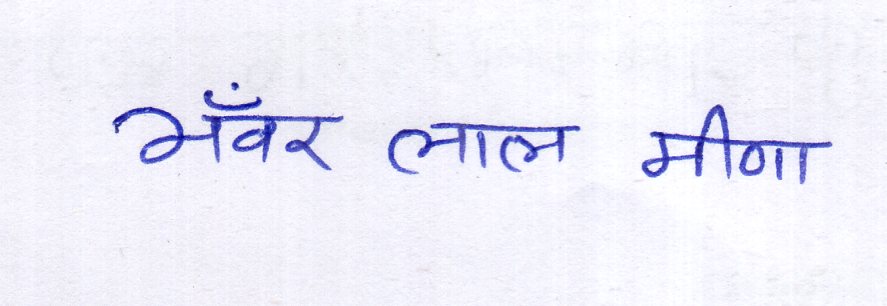 भँवर लाल मीणा